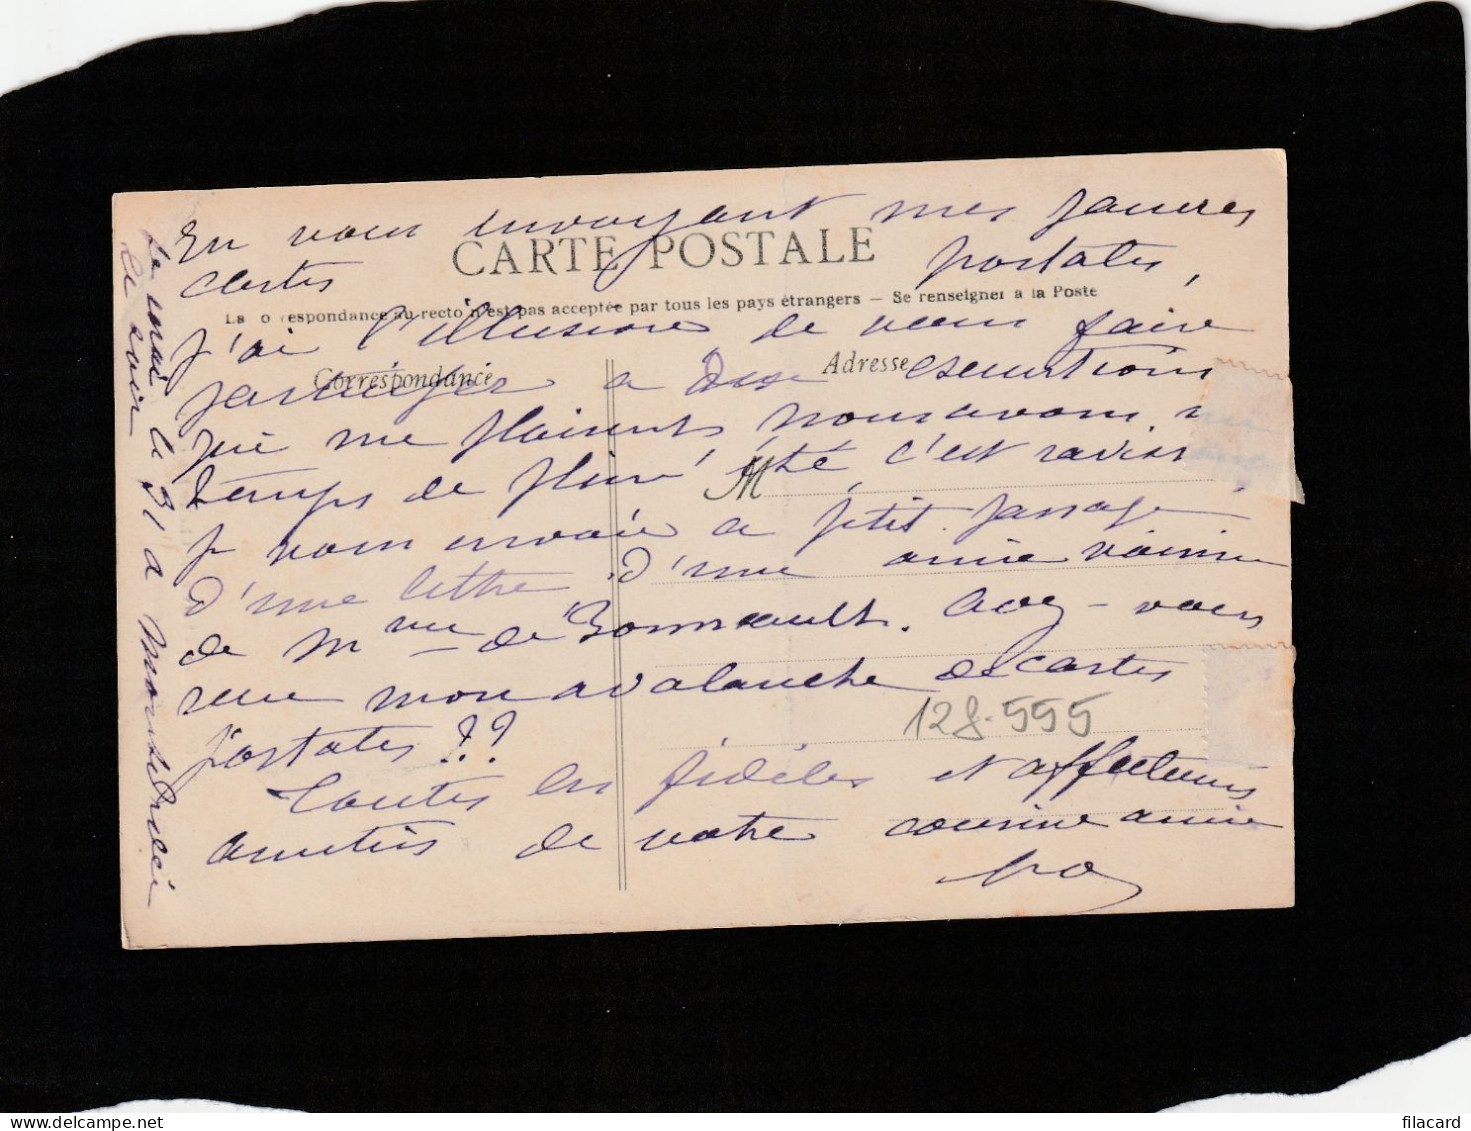 En vous envoyant mes pauvres
CARTE POSTALE
cartes postales,
La Correspondance au recto n'est pas acceptée par tous les pays étrangers — Se renseigner à la Poste
J'ai l'illusion de vous faire
Correspondance
Adresse
partager a des excurtions
qui me plaisent, nous avons un
temps de pluie, été, c'est raviss
M
je vous envoie a petit passage
d'une lettre d'une amie voisine
de Mme de Bonneault. Avez-vous
reçu mon avalanche de cartes
128.555
postales ??
Toutes les fidèles et affectueuses
amitiés de votre cousine amie
le 31 a
ce soir
filacard